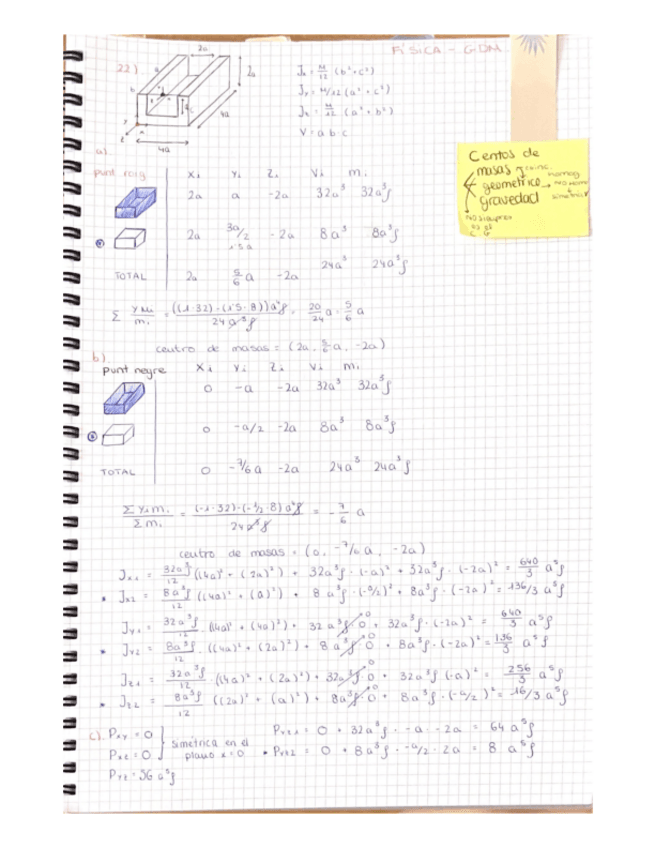 FÍSICA - GDM
22)
2a
2a
4a
4a
Jx = M/12 (b² + c²)
Jy = M/12 (a² + c²)
Jz = M/12 (a² + b²)
V = a · b · c
Centos de
masas
geometrico
gravedad
homog
NO homo
a).
punt roig
xi yi zi Vi mi
2a a -2a 32a³ 32a³ρ
2a 3a/2 -2a 8a³ 8a³ρ
1'5a
24a³ 24a³ρ
TOTAL 2a 5/6 a -2a
Σ yMi/mi = ((1·32)-(1'5·8))a⁴ρ / 24a³ρ = 20/24 a = 5/6 a
centro de masas = (2a, 5/6 a, -2a)
b).
punt negre xi yi zi Vi mi
0 -a -2a 32a³ 32a³ρ
0 -a/2 -2a 8a³ 8a³ρ
TOTAL 0 -7/6 a -2a 24a³ 24a³ρ
Σyimi / Σmi = (-1·32)-(-1/2·8)a⁴ρ / 24a³ρ = -7/6 a
centro de masas = (0, -7/6 a, -2a)
Jx1 = 32a³ρ/12 ((4a)² + (2a)²) + 32a³ρ · (-a)² + 32a³ρ · (-2a)² = 640/3 a⁵ρ
* Jx2 = 8a³ρ/12 ((4a)² + (a)²) + 8a³ρ · (-a/2)² + 8a³ρ · (-2a)² = 136/3 a⁵ρ
Jy1 = 32a³ρ/12 · ((4a)² + (4a)²) + 32a³ρ · 0 + 32a³ρ · (-2a)² = 640/3 a⁵ρ
* Jy2 = 8a³ρ/12 · ((4a)² + (2a)²) + 8a³ρ · 0 + 8a³ρ · (-2a)² = 136/3 a⁵ρ
Jz1 = 32a³ρ/12 · ((4a)² + (2a)²) + 32a³ρ · 0 + 32a³ρ · (-a)² = 256/3 a⁵ρ
* Jz2 = 8a³ρ/12 ((2a)² + (a)²) + 8a³ρ · 0 + 8a³ρ · (-a/2)² = 16/3 a⁵ρ
c). Pxy = 0
Pxz = 0
simétrica en el
plano x = 0
Pyz1 = 0 + 32a³ρ · -a · -2a = 64 a⁵ρ
* Pyz2 = 0 + 8a³ρ · -a/2 · 2a = 8 a⁵ρ
Pyz = 56 a⁵ρ